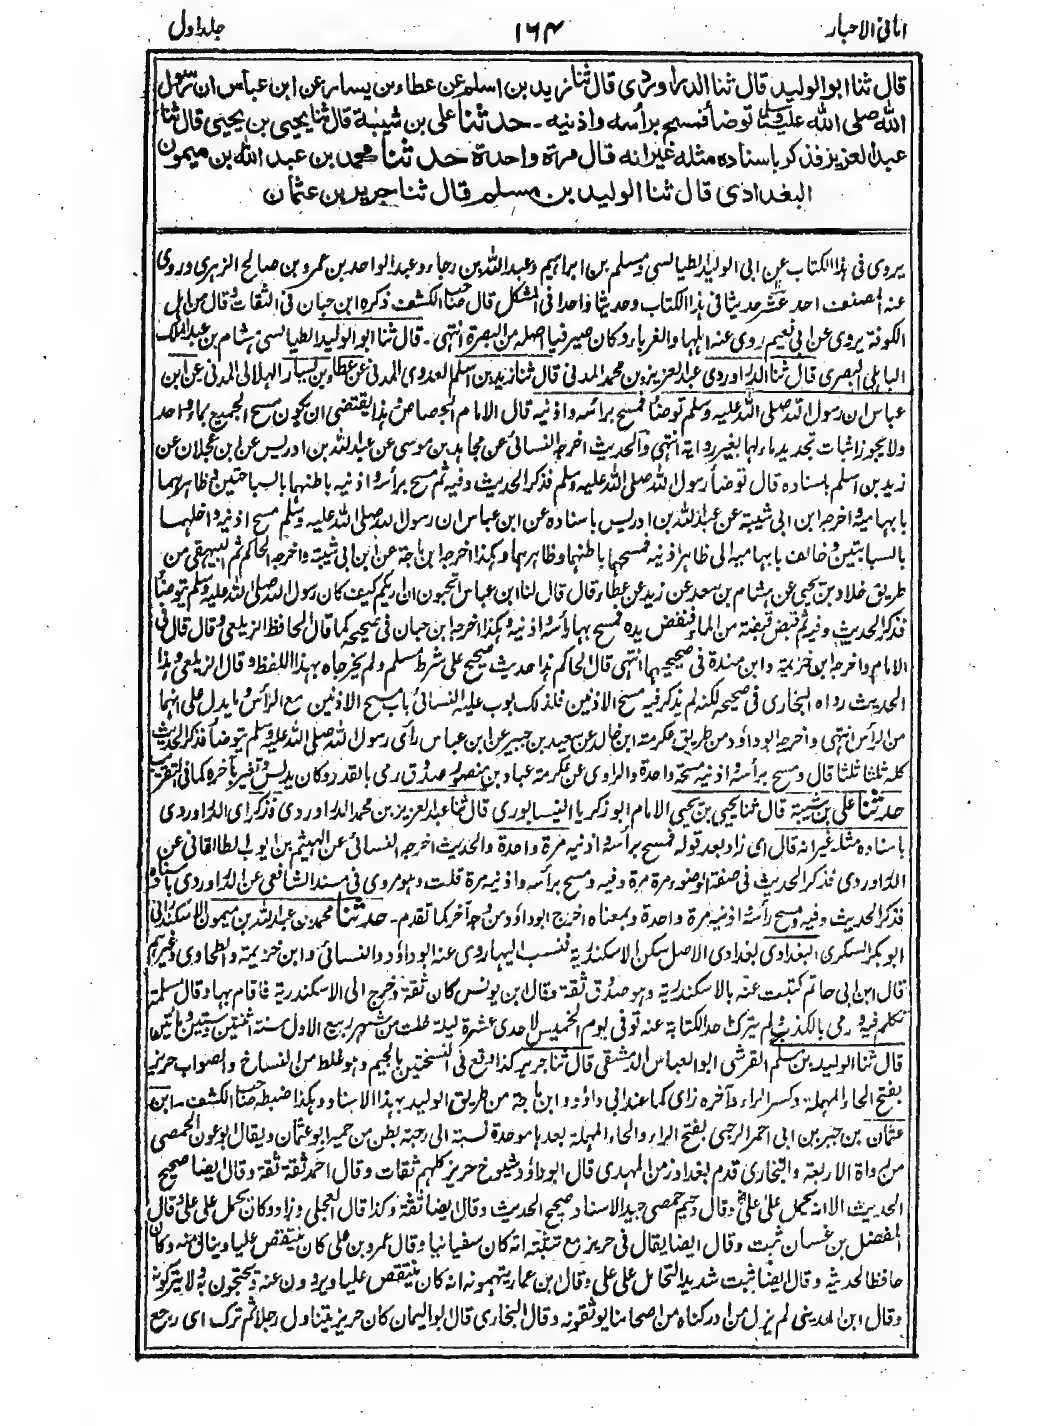 امانی الاحبار ۱۶۴ جلد اول
قال ثنا ابو الوليد قال ثنا الدراوردی قال ثنا زيد بن اسلم عن عطاء بن يسار عن ابن عباس ان رسول
الله صلی الله عليه وسلم توضأ فمسح برأسه واذنيه ـ حدثنا علی بن شيبة قال ثنا يحيی بن يحيی قال ثنا
عبد العزيز فذكر باسناده مثله غير انه قال مرة واحدة حدثنا محمد بن عبد الله بن ميمون
البغدادی قال ثنا الوليد بن مسلم قال ثنا جرير بن عثمان
يروی فی هذا الكتاب عن ابی الوليد الطيالسی ومسلم بن ابراهيم وعبد الله بن رجاء وعبد الواحد بن عمرو بن صالح الزهری وروی
عنه المصنف احد عشر حديثا فی هذا الكتاب وحديثا واحدا فی المشكل قال صاحب الكشف ذكره ابن حبان فی الثقات وقال من اهل
الكوفة يروی عن ابی نعيم روی عنه اهلها والغرباء وكان صيرفيا اصله من البصرة انتهی ـ قال ثنا ابو الوليد الطيالسی هشام بن عبد الملك
الباهلی البصری قال ثنا الدراوردی عبد العزيز بن محمد المدنی قال ثنا زيد بن اسلم العدوی المدنی عن عطاء بن يسار الهلالی المدنی عن ابن
عباس ان رسول الله صلی الله عليه وسلم توضأ فمسح برأسه واذنيه قال الامام الجصاص هذا يقتضی ان يكون مسح الجميع بماء واحد
ولا يجوز اثبات تجديد ماء لهما بغير رواية انتهی والحديث اخرجه النسائی عن مجاهد بن موسی عن عبد الله بن ادريس عن ابن عجلان عن
زيد بن اسلم باسناده قال توضأ رسول الله صلی الله عليه وسلم فذكر الحديث وفيه ثم مسح برأسه واذنيه باطنهما بالسباحتين وظاهرهما
بابهاميه واخرجه ابن ابی شيبة عن عبد الله بن ادريس باسناده عن ابن عباس ان رسول الله صلی الله عليه وسلم مسح اذنيه داخلهما
بالسبابتين وخالف بابهاميه الی ظاهر اذنيه فمسحهما باطنهما وظاهرهما وهكذا اخرجه ابن ماجة عن ابن ابی شيبة واخرجه الحاكم ثم البيهقی من
طريق خلاد بن يحيی عن هشام بن سعد عن زيد عن عطاء قال قال لنا ابن عباس اتحبون ان اريكم كيف كان رسول الله صلی الله عليه وسلم يتوضأ
فذكر الحديث وفيه ثم قبض قبضة من الماء فنفض يده فمسح بها رأسه واذنيه وهكذا اخرجه ابن حبان فی صحيحه كما قال الحافظ الزيلعی وقال قال فی
الامام واخرجه ابن خزيمة وابن مندة فی صحيحيهما انتهی قال الحاكم هذا حديث صحيح علی شرط مسلم ولم يخرجاه بهذا اللفظ وقال الزيلعی وهذا
الحديث رواه البخاری فی صحيحه لكنه لم يذكر فيه مسح الاذنين فلذلك بوب عليه النسائی باب مسح الاذنين مع الرأس وما يدل علی انهما
من الرأس انتهی واخرجه ابو داود من طريق عكرمة ابن خالد عن سعيد بن جبير عن ابن عباس رأی رسول الله صلی الله عليه وسلم يتوضأ فذكر الحديث
كله ثلثا ثلثا قال ومسح برأسه واذنيه مسحة واحدة والراوی عن عكرمة عباد بن منصور صدوق رمی بالقدر وكان يدلس وتغير بآخره كما فی التقريب
حدثنا علی بن شيبة قال ثنا يحيی بن يحيی الامام ابو زكريا النيسابوری قال ثنا عبد العزيز بن محمد الدراوردی فذكر ای الدراوردی
باسناده مثله غير انه قال ای زاد بعد قوله فمسح برأسه اذنيه مرة واحدة والحديث اخرجه النسائی عن الهيثم بن ايوب الطالقانی عن
الدراوردی فذكر الحديث فی صفة الوضوء مرة مرة وفيه ومسح برأسه واذنيه مرة قلت وهو مروی فی مسند الشافعی عن الدراوردی باسناده
فذكر الحديث وفيه ومسح رأسه واذنيه مرة واحدة وبمعناه اخرج ابو داود من وجه آخر كما تقدم ـ حدثنا محمد بن عبد الله بن ميمون الاسكندرانی
ابو بكر السكری البغدادی بغدادی الاصل سكن الاسكندرية فنسب اليها روی عنه ابو داؤد والنسائی وابن خزيمة والطحاوی وغيرهم
قال ابن ابی حاتم كتبت عنه بالاسكندرية وهو صدوق ثقة وقال ابن يونس كان ثقة وخرج الی الاسكندرية فاقام بها وقال مسلمة
تكلم فيه ورمی بالكذب ولم يترك احد الكتابة عنه توفی يوم الخميس لاحدی عشرة ليلة خلت من شهر ربيع الاول سنة اثنتين وستين ومائتين
قال ثنا الوليد بن مسلم القرشی ابو العباس الدمشقی قال ثنا جرير كذا وقع فی النسختين بالجيم وهو غلط من النساخ والصواب حريز
بفتح الحاء المهملة وكسر الراء وآخره زای كما عند ابی داؤد وابن ماجة من طريق الوليد بهذا الاسناد وهكذا ضبطه صاحب الكشف ـ ابن
عثمان بن جبر بن ابی احمر الرحبی بفتح الراء والحاء المهملة بعدها موحدة نسبة الی رحبة بطن من حمير ابو عثمان ويقال ابو عون الحمصی
من رواة الاربعة والبخاری قدم بغداد زمن المهدی قال ابو داؤد شيوخ حريز كلهم ثقات وقال احمد ثقة ثقة وقال ايضا صحيح
الحديث الا انه يحمل علی علی وقال دحيم حمصی جيد الاسناد صحيح الحديث وقال ايضا ثقة وكذا قال العجلی وزاد وكان يحمل علی علی وقال
المفضل بن غسان ثبت وقال ايضا يقال فی حريز مع تثبته انه كان سفيانيا وقال عمرو بن علی كان ينتقص عليا وينال منه وكان
حافظا لحديثه وقال ايضا ثبت شديد التحامل علی علی وقال ابن عمار يتهمونه انه كان ينتقص عليا ويروون عنه ويحتجون به ولا يتركونه
وقال ابن المدينی لم يزل من ادركناه من اصحابنا يوثقونه وقال البخاری قال ابو اليمان كان حريز يتناول رجلا ثم ترك ای رجع